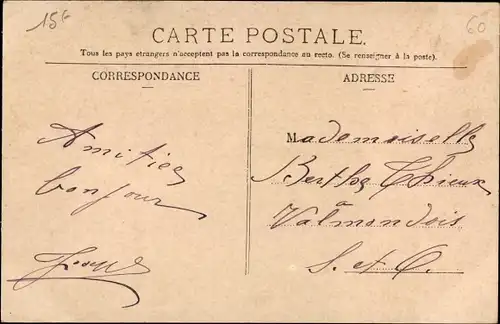 15€
60
CARTE POSTALE.
Tous les pays etrangers n'acceptent pas la correspondance au recto. (Se renseigner à la poste).
CORRESPONDANCE
Amitiés
bonjour
Joseph
ADRESSE
Mademoiselle
Berthe Thieux
à
Valmondois
S. et O.